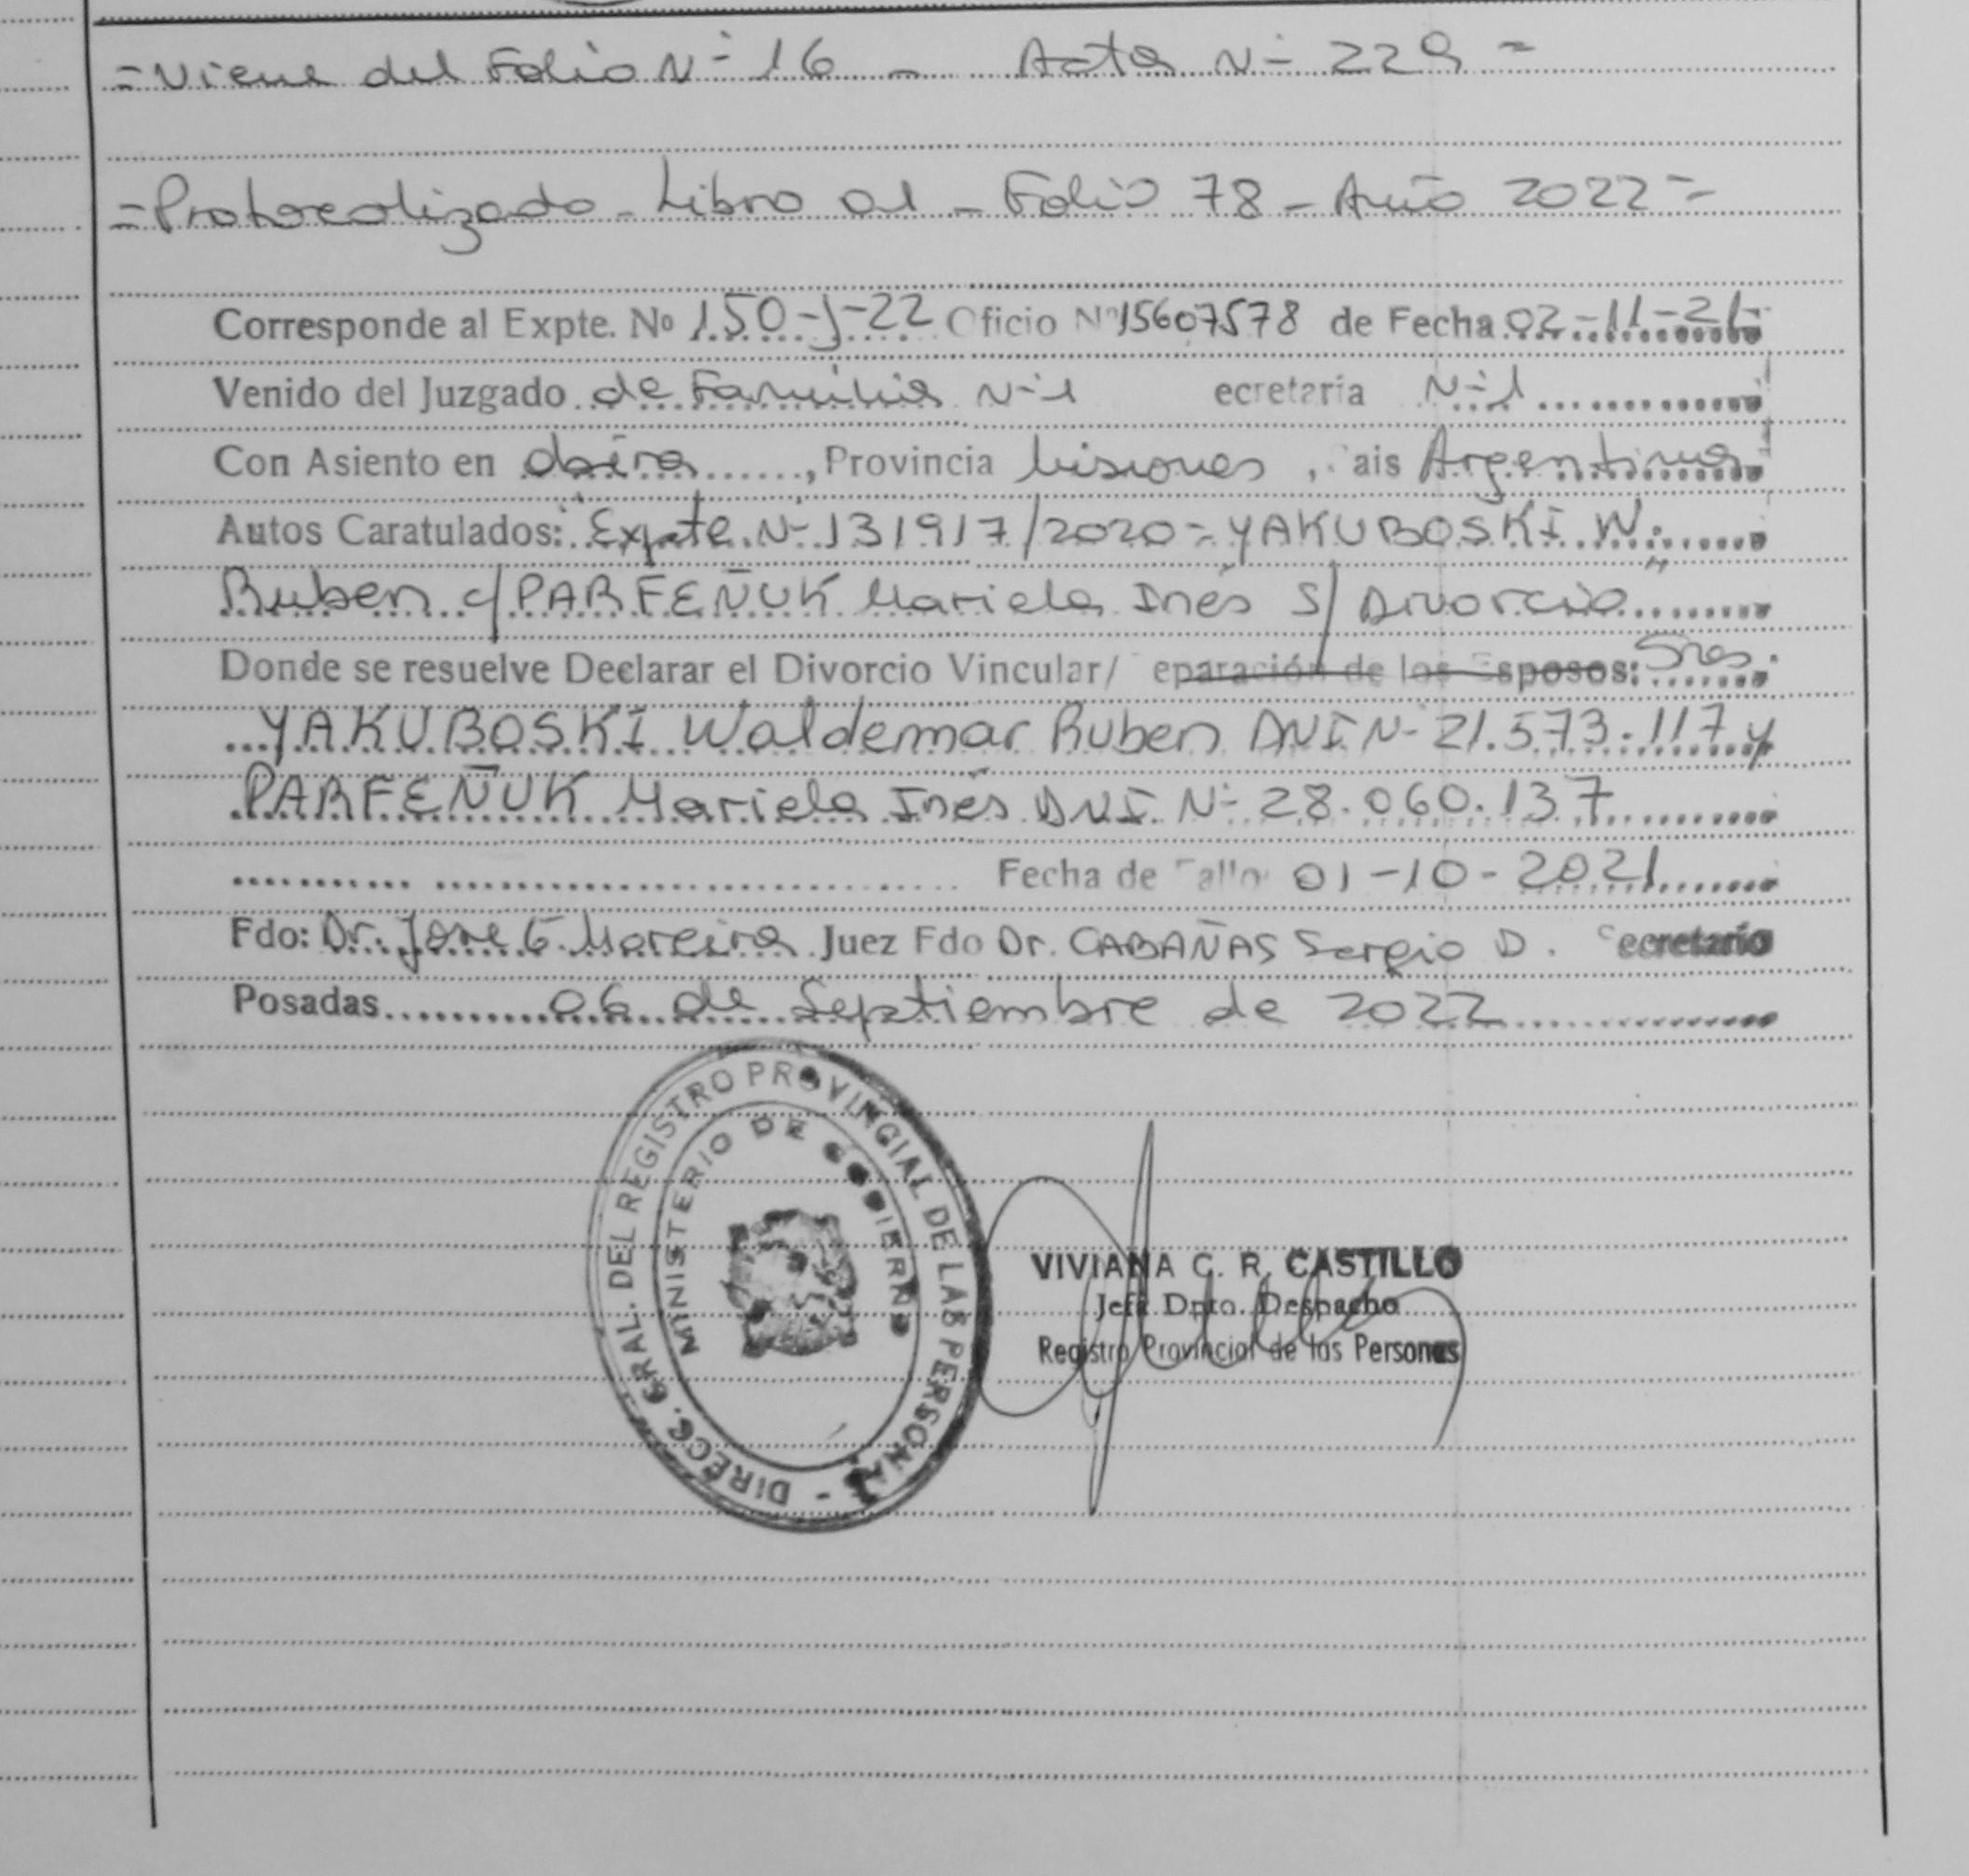 =Viene del Folio Nº 16 - Acta Nº 229=
=Protocolizado - Libro 01 - Folio 78 - Año 2022=
Corresponde al Expte. No 150-J-22 Oficio Nº 15607578 de Fecha 02-11-21-
Venido del Juzgado de Familia Nº 1 ecretaría Nº 1
Con Asiento en, Provincia Misiones, ais Argentina
Autos Caratulados: "Expte. Nº 131917/2020= YAKUBOSKI W.
Ruben c/ PARFEÑUK Mariela Inés S/ Divorcio"
Donde se resuelve Declarar el Divorcio Vincular/ eparación de los Esposos: Sres.
YAKUBOSKI Waldemar Ruben DNI Nº 21.573.117 y
PARFEÑUK Mariela Inés DNI Nº 28.060.137
Fecha de Fallo 01-10-2021
Fdo: Dr. Jose G. Moreira Juez Fdo Dr. CABAÑAS Sergio D. Secretario
Posadas 06 de Septiembre de 2022
DIRECC. GRAL. DEL REGISTRO PROVINCIAL DE LAS PERSONAS -
MINISTERIO DE GOBIERNO
VIVIANA C. R. CASTILLO
Jefa Dpto. Despacho
Registro Provincial de las Personas